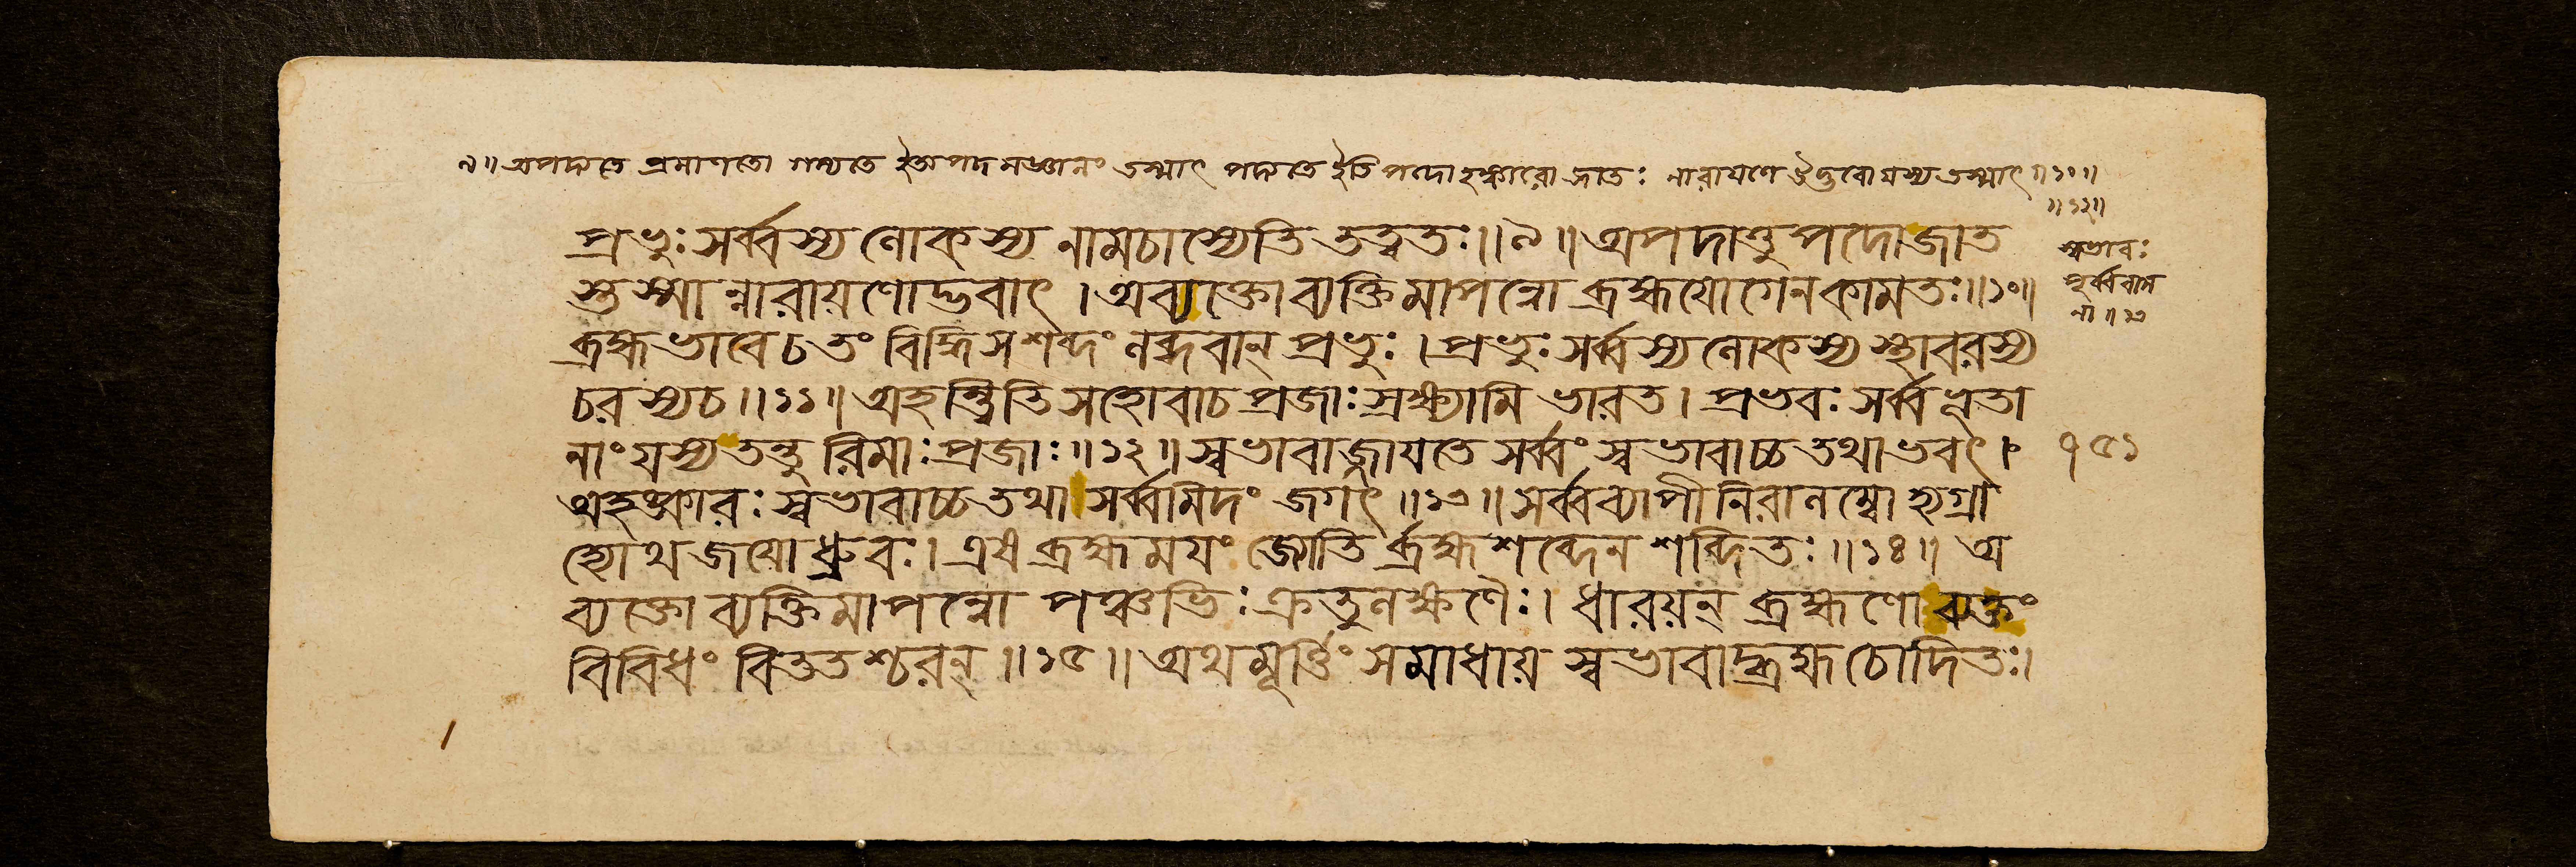 ৯॥ অপদ্যতে প্রমাণতো গম্যতে ইতঅপদমজ্ঞানং তস্মাৎ পদ্যতে ইতি পদোহঙ্কারো জাতঃ নারায়ণে উদ্ভবো যস্য তস্মাৎ॥১০॥
॥১২॥
প্রভুঃ সর্ব্বস্য লোকস্য নামচাস্যেতি তত্ত্বতঃ॥৯॥ অপদাত্তু পদোজাত
স্বভাবঃ
স্তস্মান্নারায়ণোদ্ভবাৎ । অব্যক্তো ব্যক্তিমাপন্নো ব্রহ্মযোগেনকামতঃ॥১০॥
পূর্ব্ববাস
না॥১৩
ব্রহ্মভাবেচতং বিদ্ধি সশব্দং লব্ধবান্ প্রভুঃ । প্রভুঃ সর্ব্বস্যলোকস্য স্থাবরস্য
চরস্যচ॥১১॥ অহন্ত্বিতি সহোবাচ প্রজাঃ স্রক্ষ্যামি ভারত। প্রভবঃ সর্ব্বভূতা
নাং যস্য তন্তুরিমাঃ প্রজাঃ॥১২॥ স্বভাবাজ্জায়তে সর্ব্বং স্বভাবাচ্চ তথাভবৎ।
৭৫১
অহঙ্কারঃ স্বভাবাচ্চ তথা সর্ব্বমিদং জগৎ॥১৩॥ সর্ব্বব্যাপীনিরালম্বোহ্যগ্রা
হ্যোথ জয়ো ধ্রুবঃ। এষ ব্রহ্মময়ং জ্যোতি র্ব্রহ্মশব্দেন শব্দিতঃ॥১৪॥ অ
ব্যক্তো ব্যক্তিমাপন্নো পঞ্চভিঃ ক্রতুলক্ষণৈঃ। ধারয়ন্ ব্রহ্মণো ব্যক্তং
বিবিধং বিততশ্চরন্॥১৫॥ অথ মূর্ত্তিং সমাধায় স্বভাবাদ্ব্রহ্মচোদিতঃ।